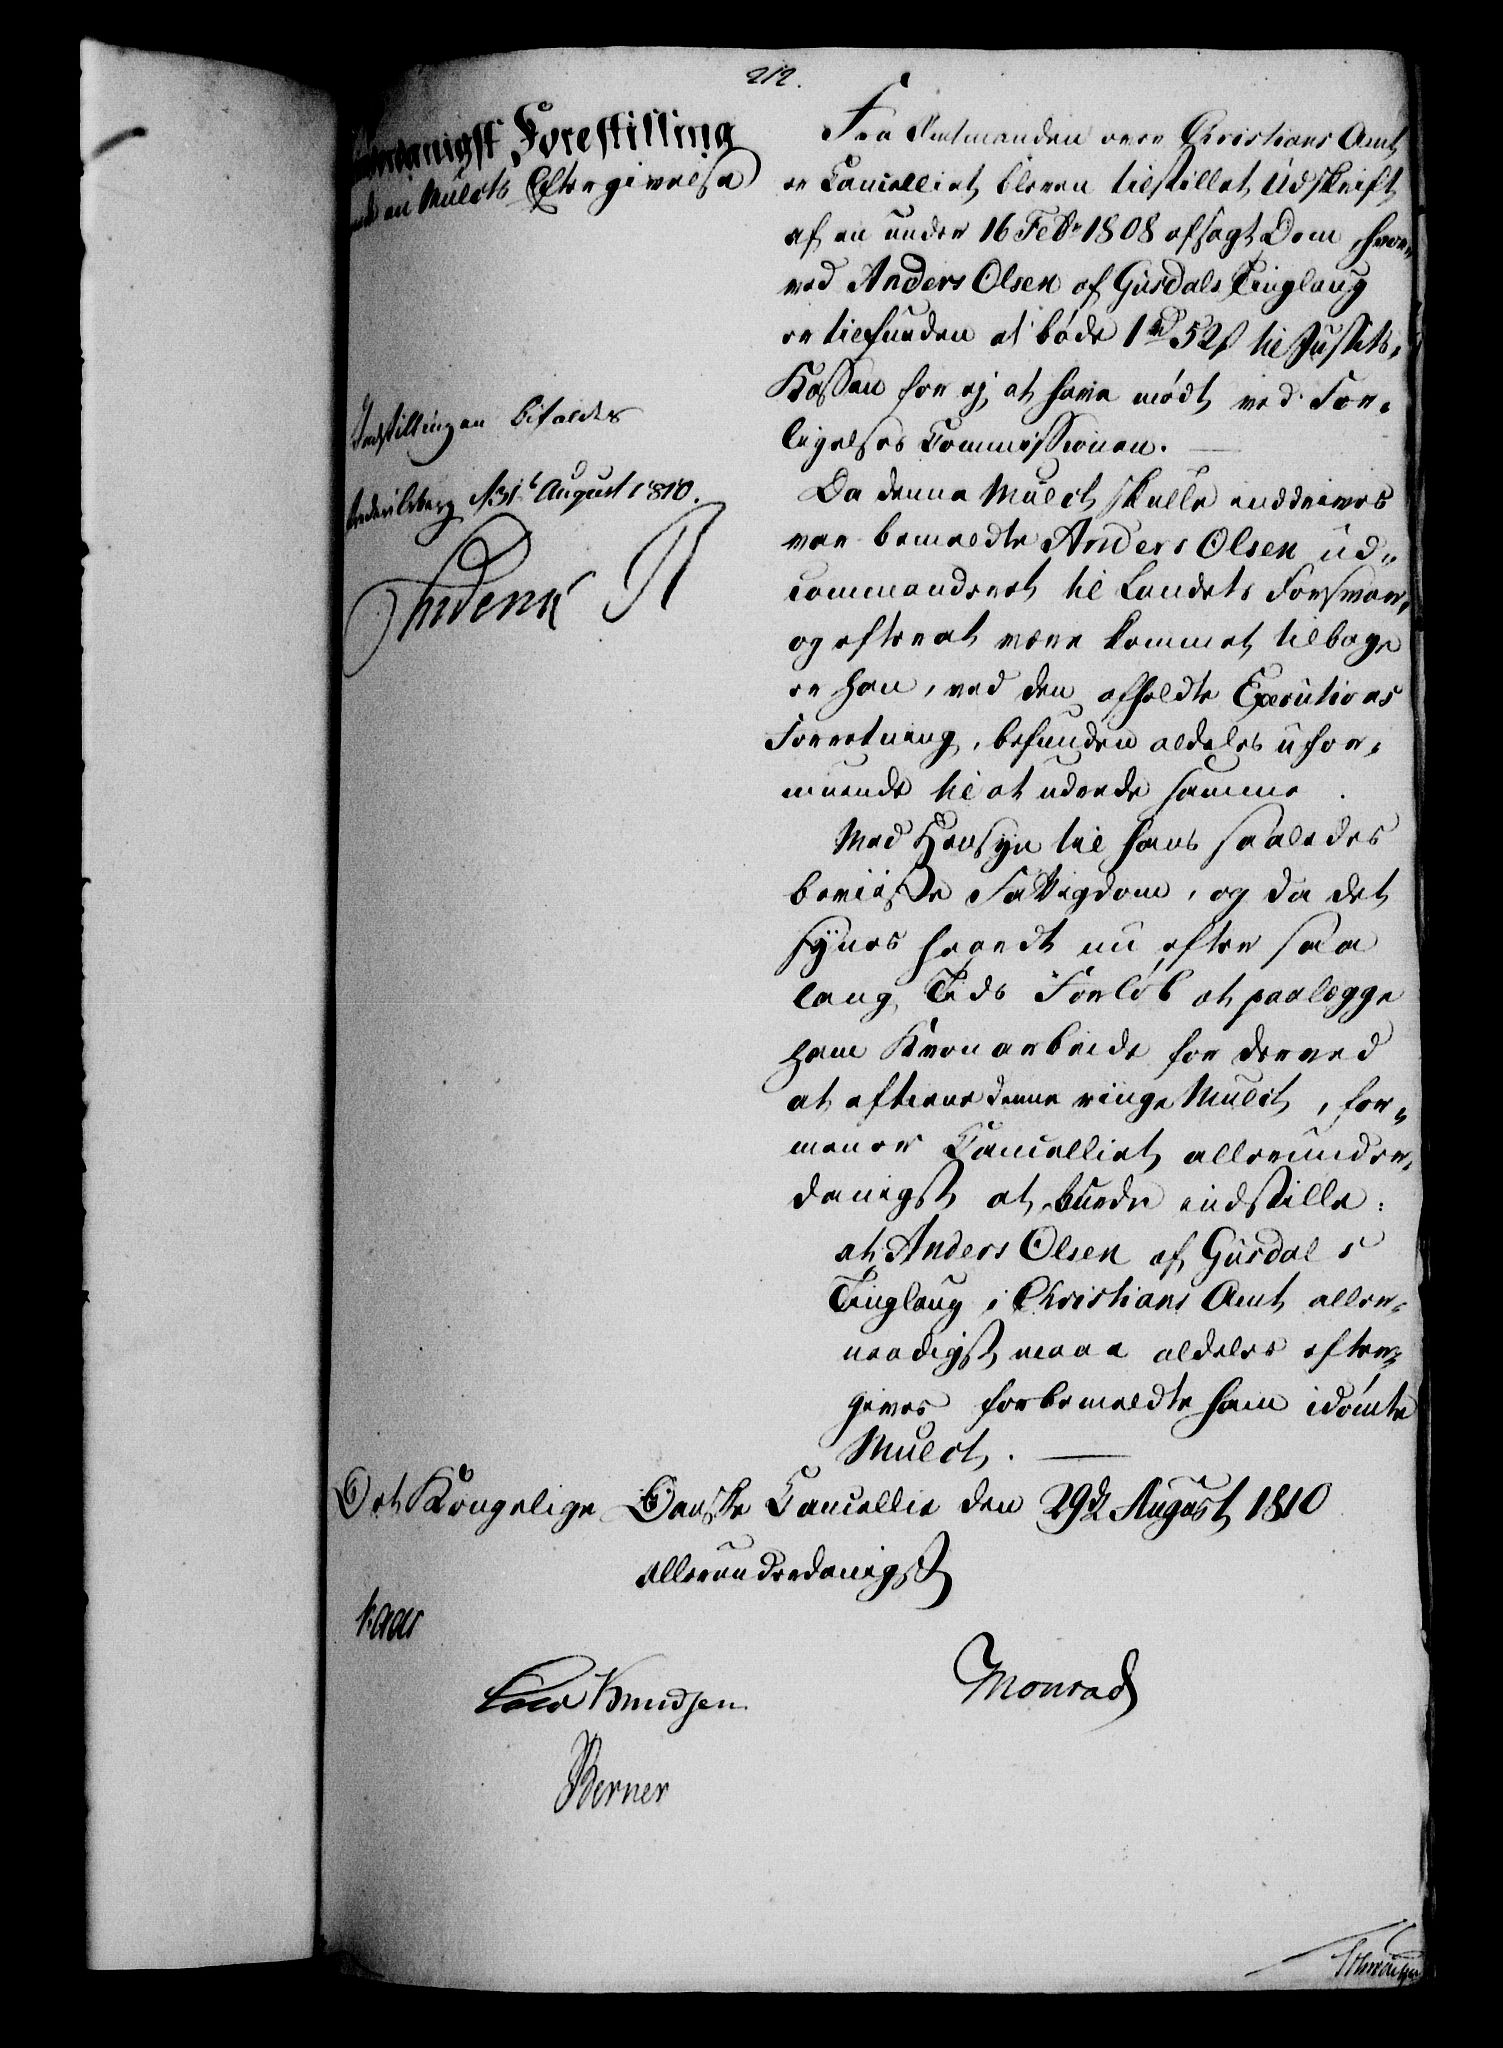 212.
Forestilling
en Mulcts Eftergivelse
Indstillingen bifaldes
Frederiksberg d 31t August 1810.
Frederik R
Fra Amtmanden over Christians Amt
er Cancelliet bleven tilstillet Udskrift
af en under 16 Febr 1808 afsagt Dom, hvor-
ved Anders Olsen af Gusdals Tinglaug
er tilfunden at bøde 1 rd 52 s til Justits-
Kassen for ej at have mødt ved For-
ligelses Commissionen. —
Da denne Mulct skulle inddrives
var bemeldte Anders Olsen ud-
commanderet til Landets Forsvar,
og efterat være kommet tilbage
er han, ved den afholdte Executions
Forretning, befunden aldeles ufor-
muende til at udrede samme.
Med Hensyn til hans saaledes
beviiste Fattigdom, og da det
synes haardt nu efter saa
lang Tids Forløb at paalægge
ham Kronarbeide for derved
at aftiene denne ringe Mulct, for-
mener Cancelliet allerunder-
danigst at burde indstille:
at Anders Olsen af Gusdals
Tinglaug i Christians Amt aller-
naadigst maae aldeles efter-
gives forbemeldte ham idømte
Mulct. —
Det Kongelige Danske Cancellie den 29de August 1810
allerunderdanigst
Kaas
Cold Knudsen
Monrad
Berner